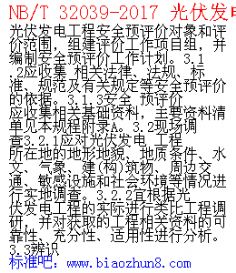 NB/T 32039-2017 光伏发电
光伏发电工程安全预评价对象和评
价范围，组建评价工作项目组，并
编制安全预评价工作计划。3.1
.2应收集 相关法律、法规、标
准、规范及有关规定等安全预评价
的依据。3.1.3安全 预评价
应收集相关基础资料，主要资料清
单见本规程附录A。3.2现场调
查3.2.1应对光伏发电 工程
所在地的地形地貌、地质条件、水
文、气象、建(构)筑物、周边交
通、敏感设施和社会环境等情况进
行实地调查。3.2.2宜根据光
伏发电工程的实际进行类比工程调
研，并对获取的工程相关资料的可
靠性、充分性、适用性进行分析。
3.3辨识
标准吧：www.biaozhun8.com